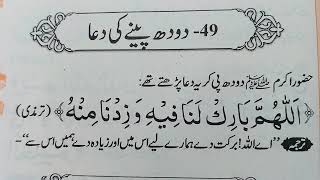 49- دودھ پینے کی دعا
حضور اکرم ﷺ دودھ پی کر یہ دعا پڑھتے تھے:
﴿اَللّٰهُمَّ بَارِكْ لَنَا فِيْهِ وَزِدْنَا مِنْهُ﴾ (ترمذی)
ترجمہ ”اے اللہ! برکت دے ہمارے لیے اس میں اور زیادہ دے ہمیں اس سے“-